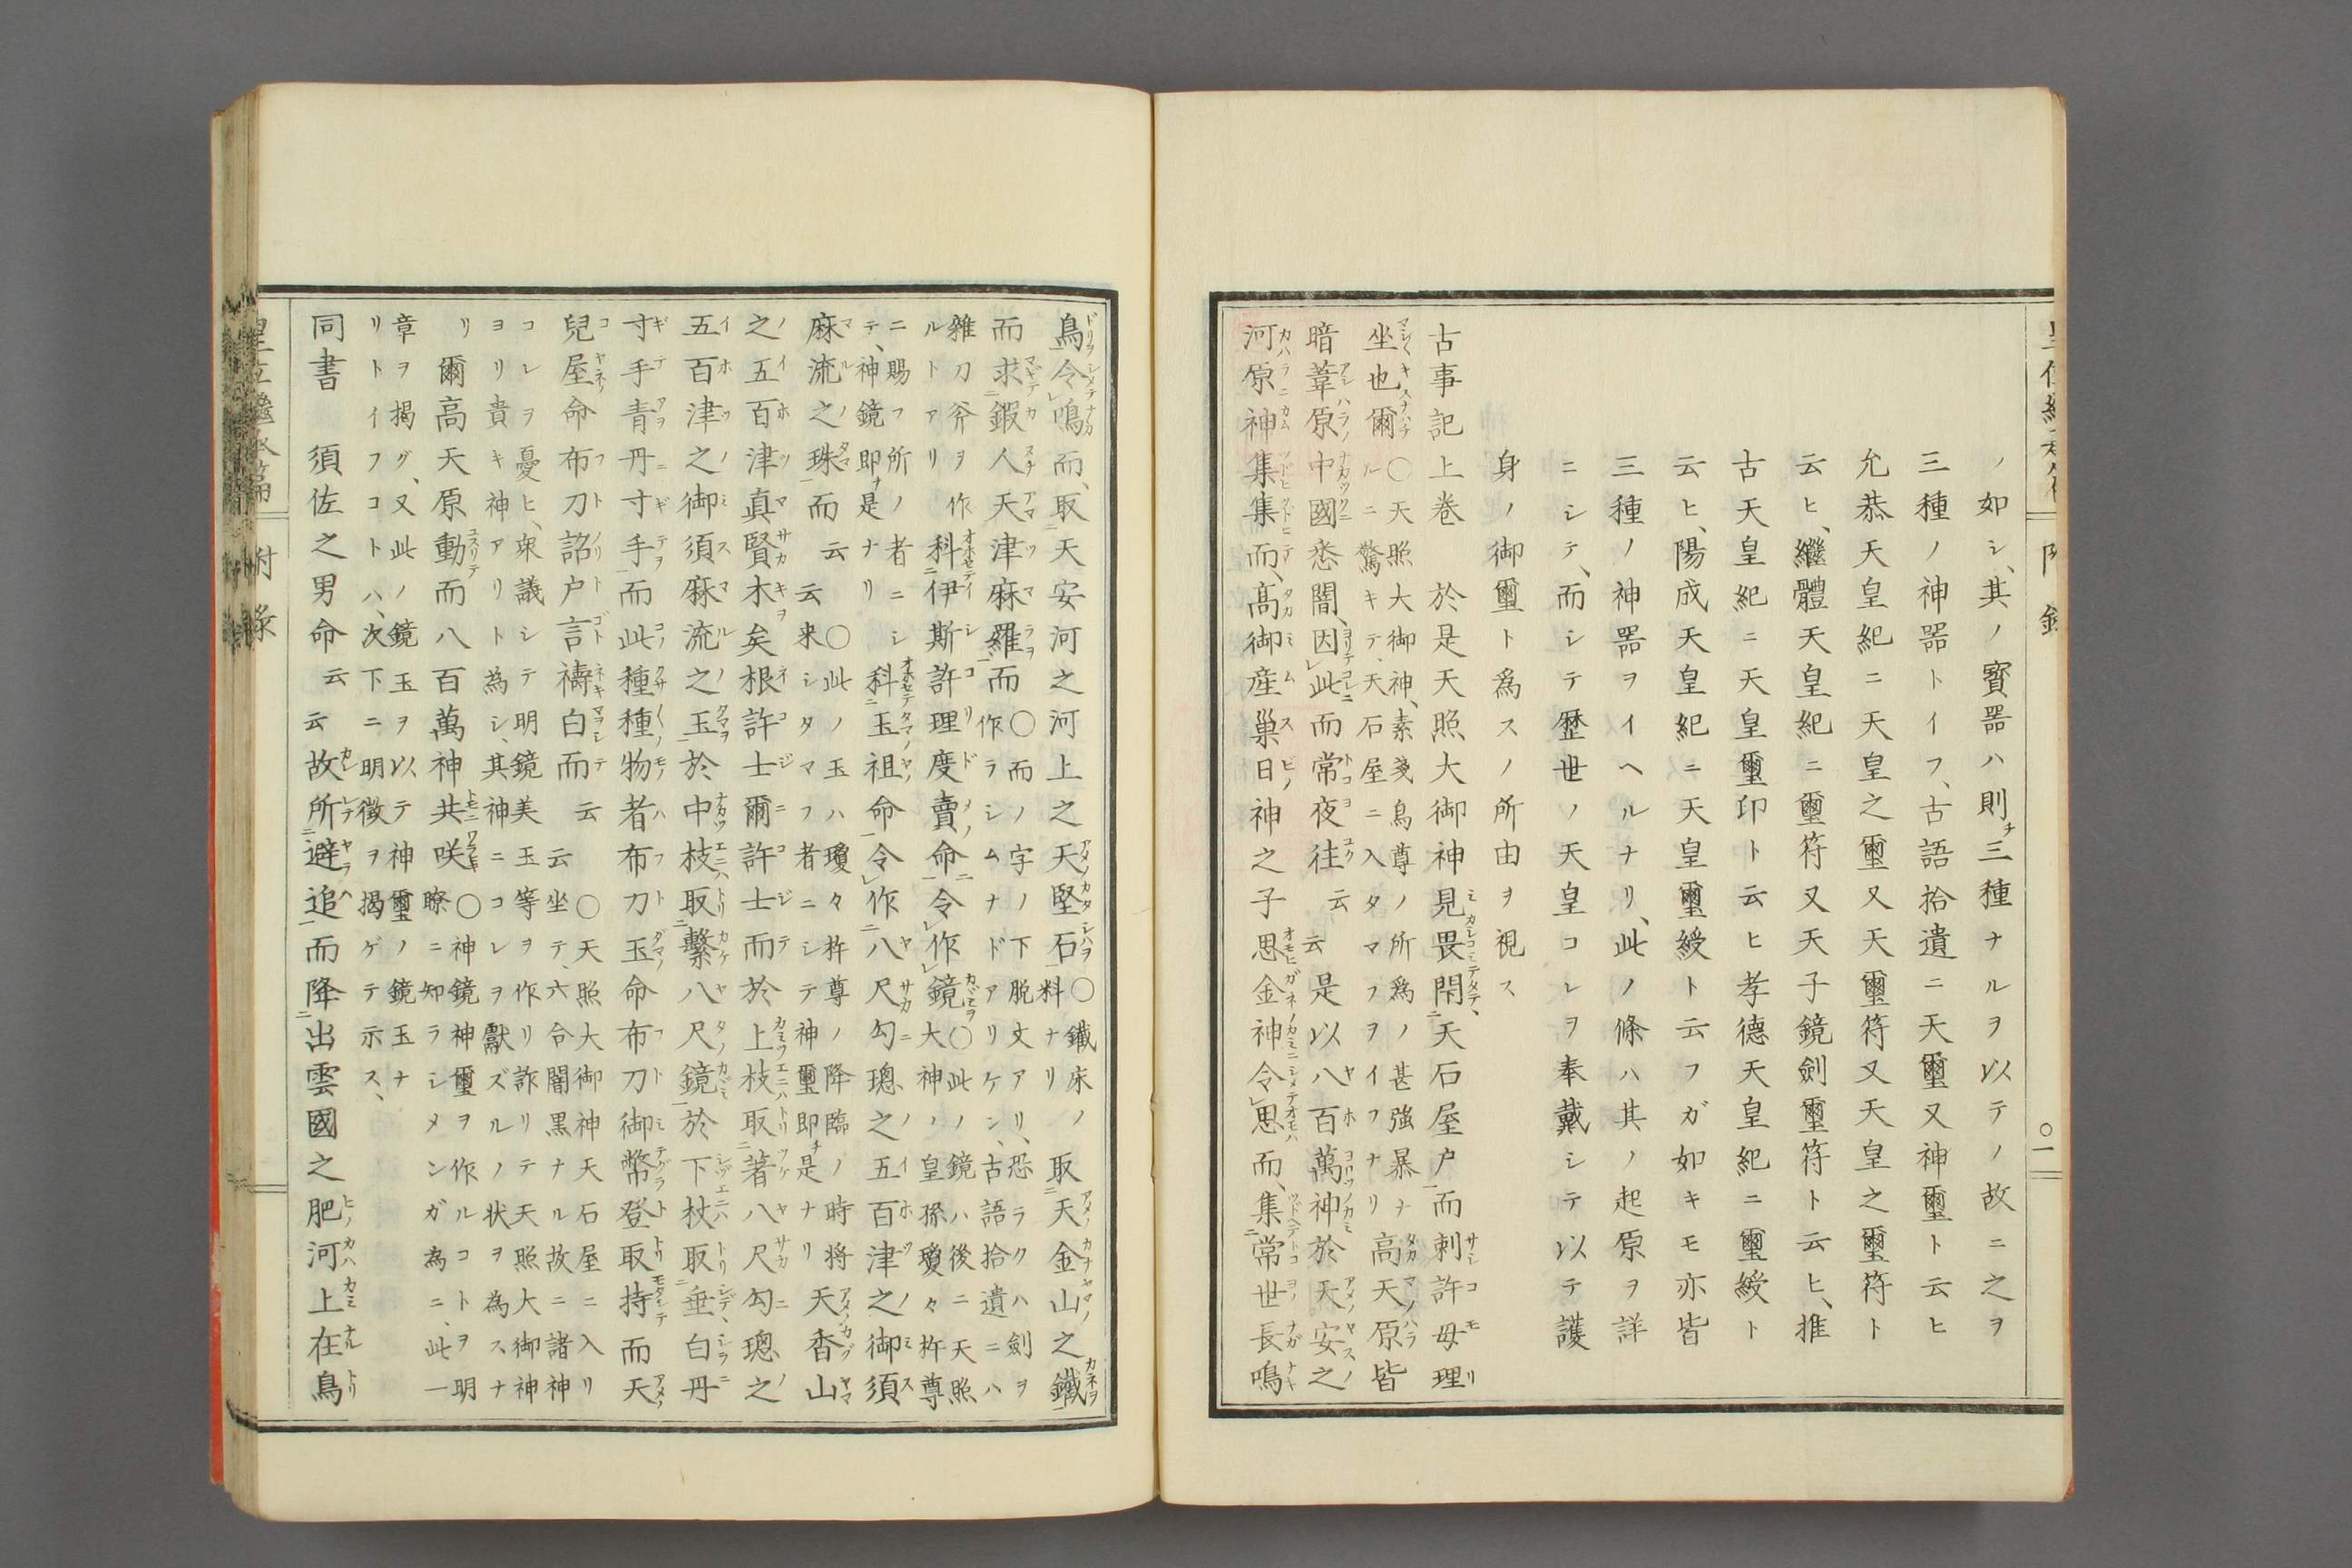 附錄
〇一
ノ如シ、其ノ寳器ハ則チ三種ナルヲ以テノ故ニ之ヲ
三種ノ神器トイフ、古語拾遺ニ天璽又神璽ト云ヒ
允恭天皇紀ニ天皇之璽又天璽符又天皇之璽符ト
云ヒ、繼體天皇紀ニ璽符又天子鏡劍璽符ト云ヒ、推
古天皇紀ニ天皇璽印ト云ヒ孝德天皇紀ニ璽綬ト
云ヒ、陽成天皇紀ニ天皇璽綬ト云フガ如キモ亦皆
三種ノ神器ヲイヘルナリ、此ノ條ハ其ノ起原ヲ詳
ニシテ、而シテ歴世ノ天皇コレヲ奉戴シテ以テ護
身ノ御璽ト爲スノ所由ヲ視ス
古事記上巻　於是天照大御神見畏閇天石屋戸而刺許母理
坐也爾
〇天照大御神、素戔烏尊ノ所爲ノ甚強暴ナ
ルニ驚キテ、天石屋ニ入タマフヲイフナリ
高天原皆
暗葦原中國悉闇、因此而常夜往云云是以八百萬神於天安之
河原神集集而、高御産巢日神之子思金神令思而、集常世長鳴
鳥、令鳴而、取天安河之河上之天堅石
〇鐵床ノ
料ナリ
取天金山之鐵
而求鍜人天津麻羅而
〇而ノ字ノ下脱文アリ、恐ラクハ劍ヲ
作ラシムナドアリケン、古語拾遺ニハ
雜刀斧ヲ作
ルトアリ
科伊斯許理度賣命令作鏡
〇此ノ鏡ハ後ニ天照
大神ノ、皇孫瓊々杵尊
ニ賜フ所ノ者ニシ
テ、神鏡即チ是ナリ
科玉祖命令作八尺勾璁之五百津之御須
麻流之珠而云云
〇此ノ玉ハ瓊々杵尊ノ降臨ノ時将
来シタマフ者ニシテ神璽即チ是ナリ
天香山
之五百津真賢木矣根許士爾許士而於上枝取著八尺勾璁之
五百津之御須麻流之玉於中枝取繫八尺鏡於下枝取垂白丹
寸手青丹寸手而此種種物者布刀玉命布刀御幣登取持而天
兒屋命布刀詔戸言禱白而云云
〇天照大御神天石屋ニ入リ
坐テ、六合闇黒ナル故ニ諸神
コレヲ憂ヒ、衆議シテ明鏡美玉等ヲ作リ詐リテ天照大御神
ヨリ貴キ神アリト為シ、其神ニコレヲ獻ズルノ状ヲ為スナ
リ
爾高天原動而八百萬神共咲
〇神鏡神璽ヲ作ルコトヲ明
瞭ニ知ラシメンガ為ニ、此一
章ヲ揭グ、又此ノ鏡玉ヲ以テ神璽ノ鏡玉ナ
リトイフコトハ、次下ニ明徴ヲ揭ゲテ示ス、
同書　須佐之男命云云故所避追而降出雲國之肥河上在鳥
皇位繼承篇
附錄